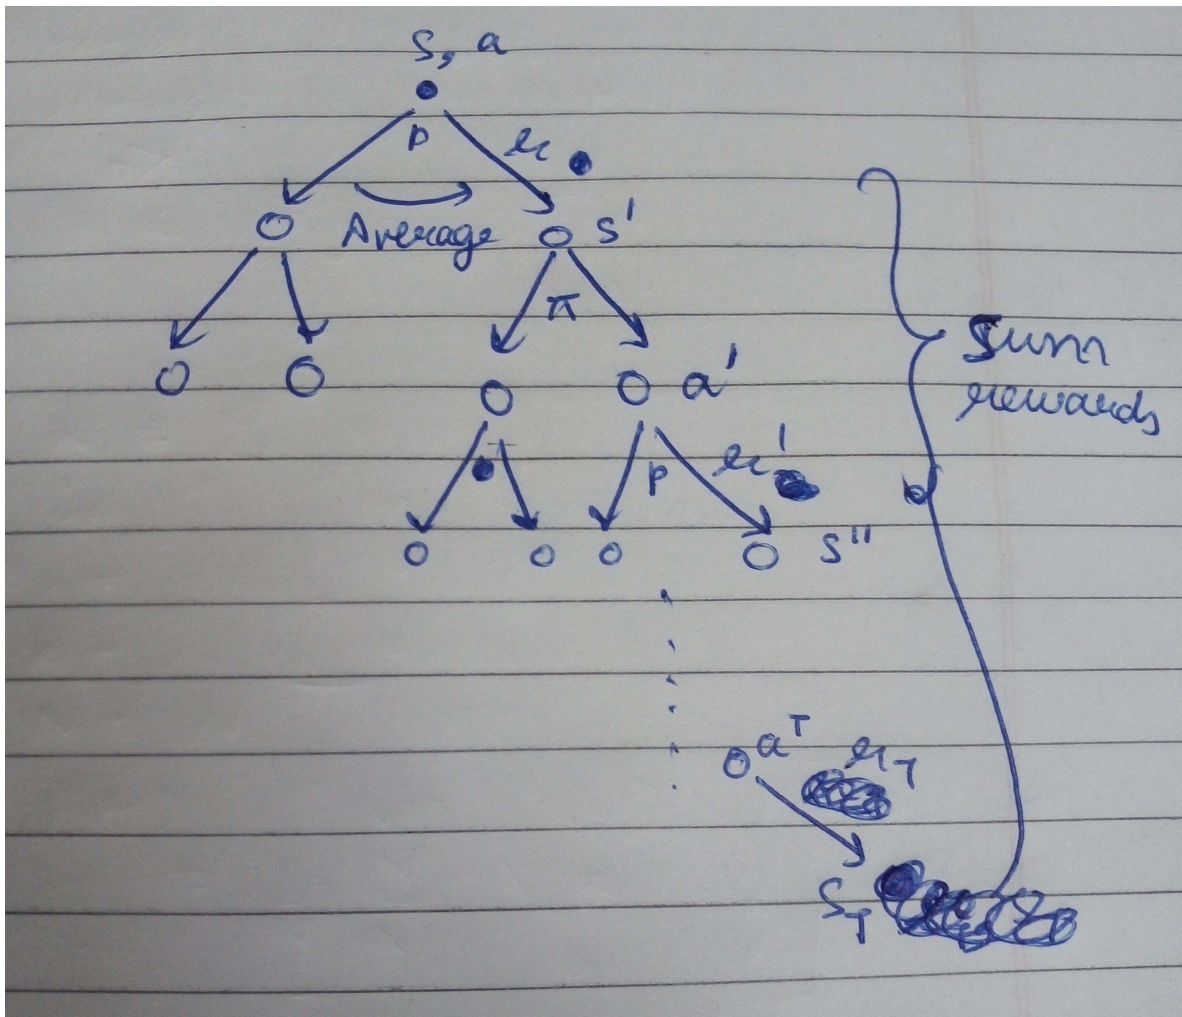 S, a
p r
Average S'
π
a'
p r'
S"
Sum
rewards
a^T r_T
S_T